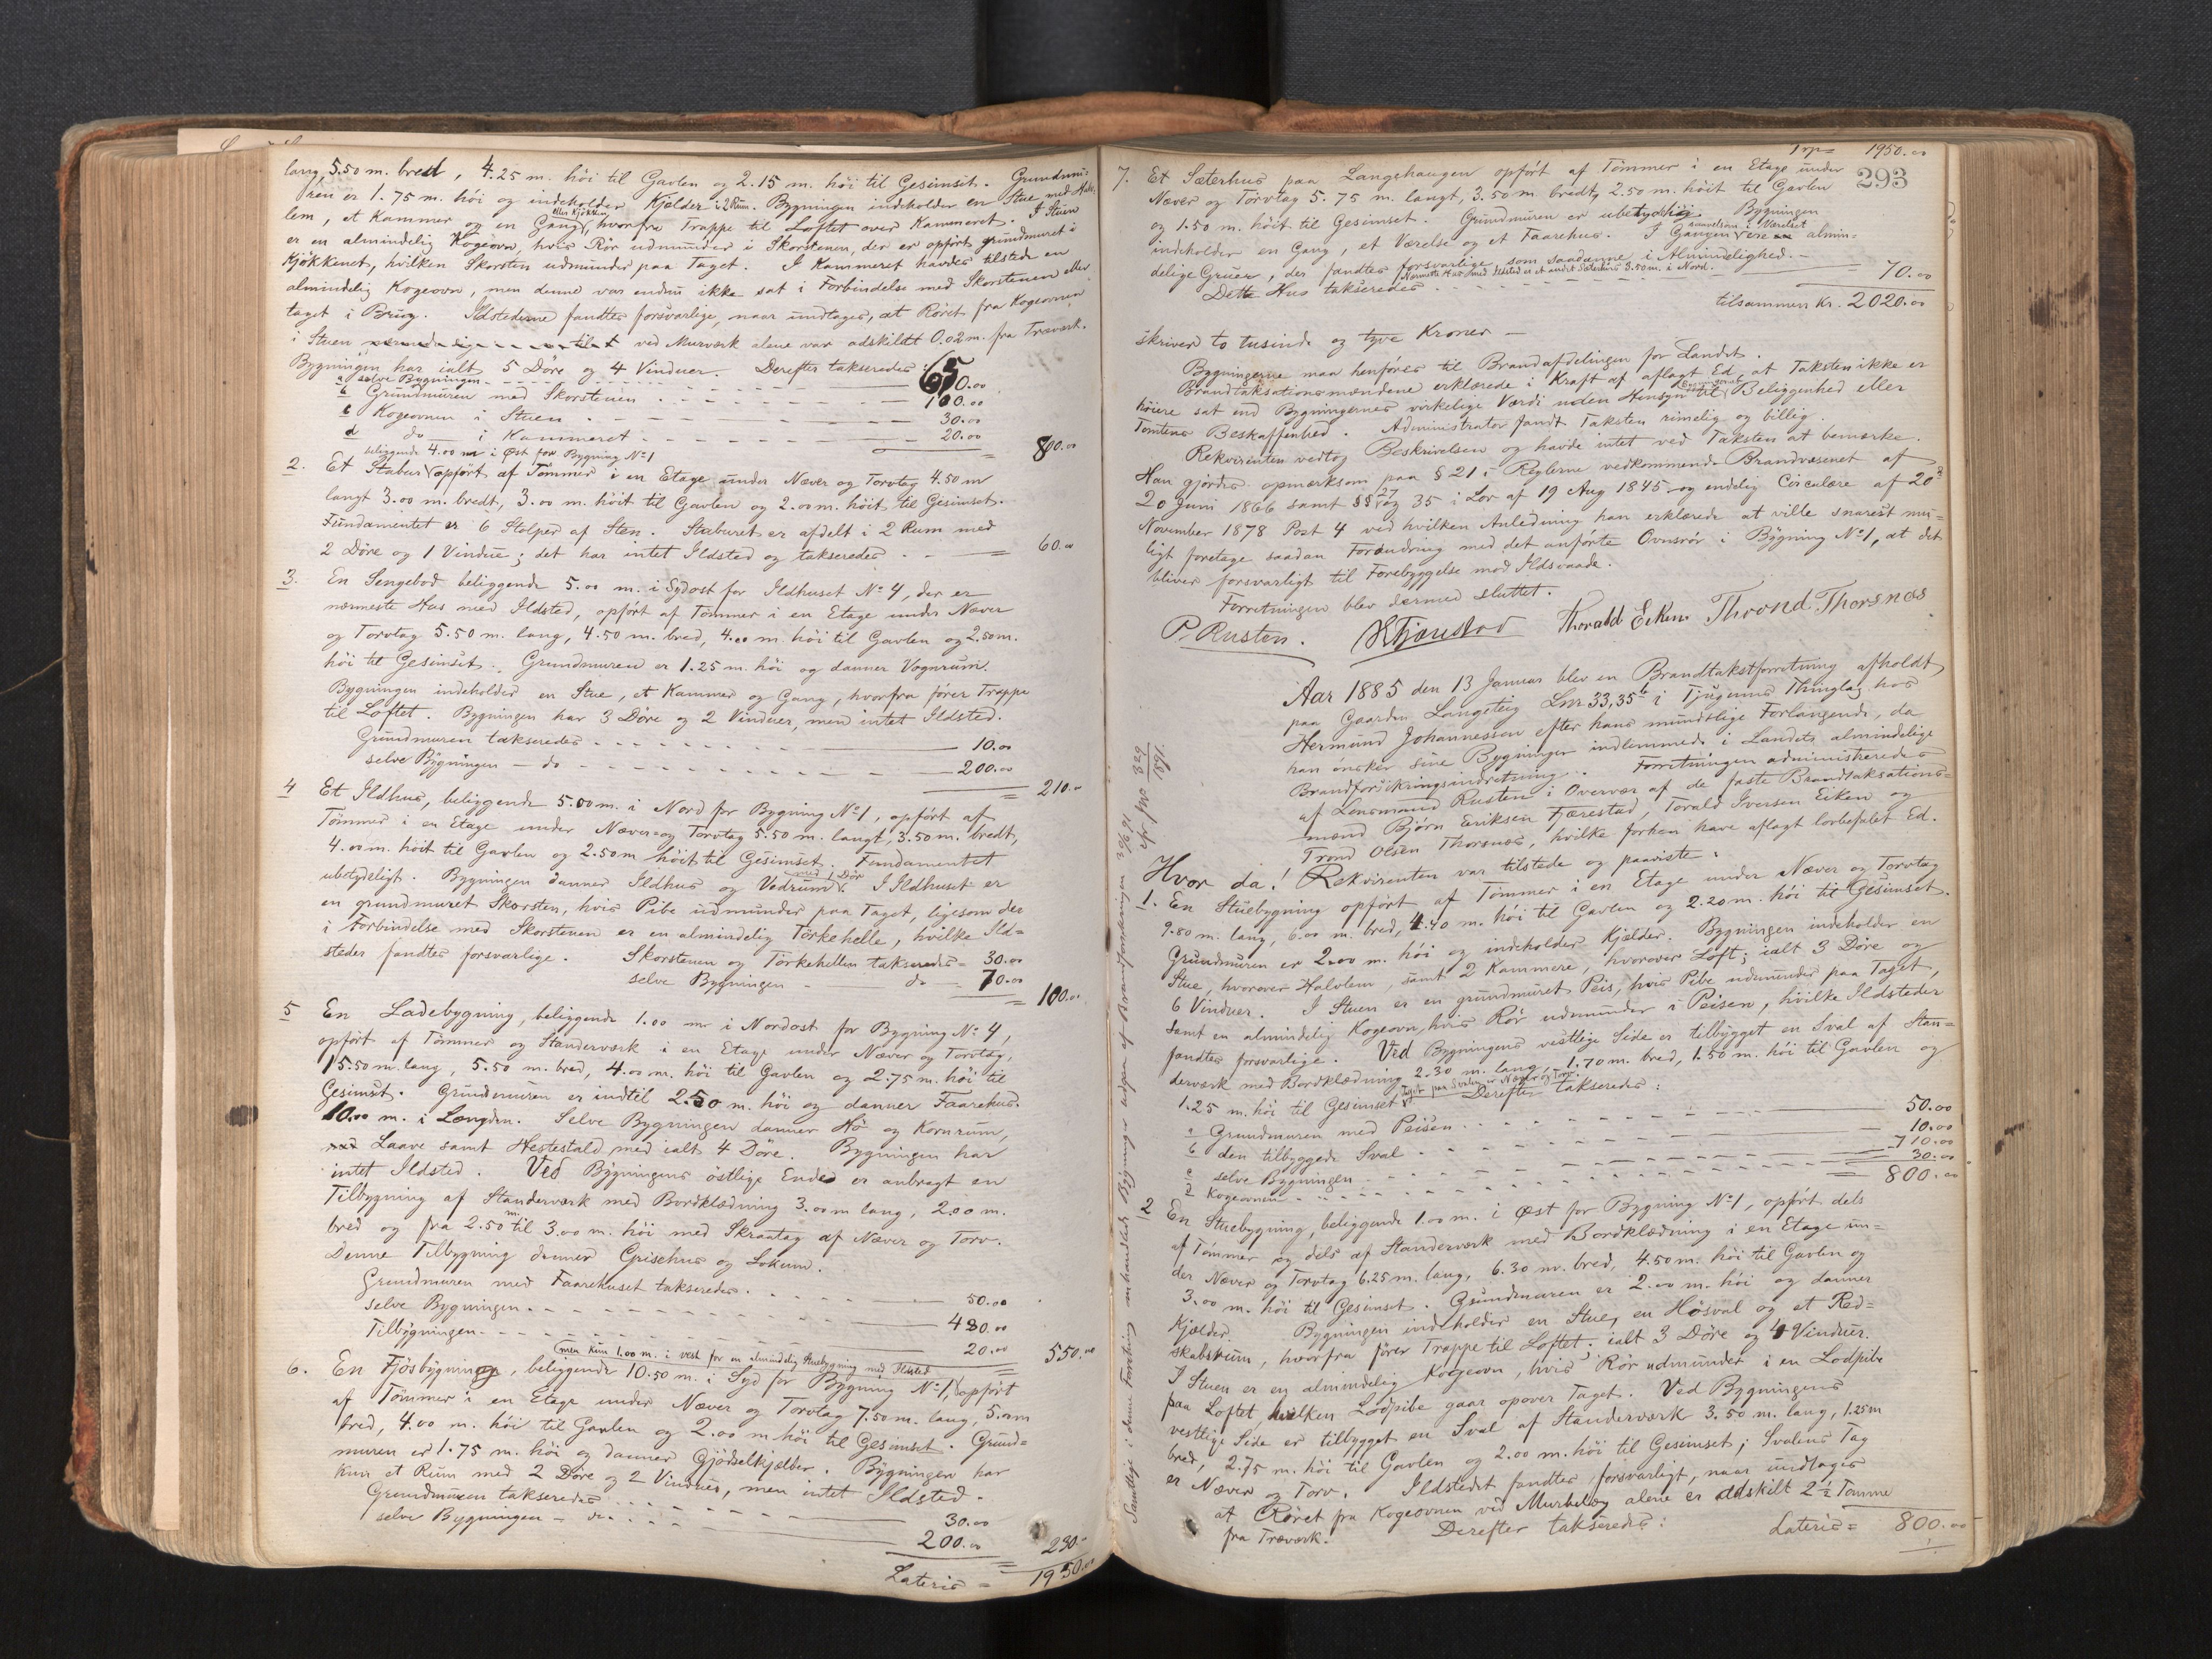 lang, 5.50 m. bred, 4.25 m. høi til Gavlen og 2.15 m. høi til Gesimset. Grundmu=
ren er 1.75 m. høi og indeholder Kjælder i 2 Rum. Bygningen indeholder en Stue med
lem, et Kammer og en Gang eller Kjøkken, hvorfra Trappe til Loftet over Kammeret. I Stuen
er en almindelig Kogeovn, hvis Rør udmunder i Skorstenen, der er opført grundmuret i
Kjøkkenet, hvilken Skorsten udmunder paa Taget. I Kammeret havdes tilstede en
almindelig Kogeovn, men denne var endnu ikke sat i Forbindelse med Skorstenen eller
taget i Brug. Ildstederne fandtes forsvarlige, naar undtages, at Røret fra Kogeovnen
i Stuen ved Murværk alene var adskildt 0.02 m. fra Træværk.
Bygningen har ialt 5 Døre og 4 Vinduer. Derefter takseredes:
a selve Bygningen 650.00
b Grundmuren med Skorstenen 100.00
c Kogeovnen i Stuen 30.00
d do i Kammeret 20.00
= 800.00
beliggende 4.00 m i Øst for Bygning No 1
2. Et Stabur opført af Tømmer i en Etage under Næver og Torvtag 4.50 m
langt 3.00 m. bredt, 3.00 m. høit til Gavlen og 2.00 m. høit til Gesimset.
Fundamentet er 6 Stolper af Sten. Staburet er afdelt i 2 Rum med
2 Døre og 1 Vindue; det har intet Ildsted og takseredes = 60.00
3. En Sengebod beliggende 5.00 m. i Sydost for Ildhuset No 4, der er
nærmeste Hus med Ildsted, opført af Tømmer i en Etage under Næver
og Torvtag 5.50 m. lang, 4.50 m. bred, 4.00 m. høi til Gavlen og 2.50 m.
høi til Gesimset. Grundmuren er 1.25 m. høi og danner Vognrum.
Bygningen indeholder en Stue, et Kammer og Gang, hvorfra fører Trappe
til Loftet. Bygningen har 3 Døre og 2 Vinduer, men intet Ildsted.
Grundmuren takseredes 10.00
selve Bygningen – do 200.00
= 210.00
4 Et Ildhus, beliggende 5.00 m. i Nord for Bygning No 1, opført af
Tømmer i en Etage under Næver og Torvtag 5.50 m. langt, 3.50 m. bredt,
4.00 m. høit til Gavlen og 2.50 m høit til Gesimset. Fundamentet
ubetydeligt. Bygningen danner Ildhus og Vedrum med 1 Dør. I Ildhuset er
en grundmuret Skorsten, hvis Pibe udmunder paa Taget, ligesom der
i Forbindelse med Skorstenen er en almindelig Tørkehelle, hvilke Ild=
steder fandtes forsvarlige. Skorstenen og Tørkehellen takseredes = 30.00
selve Bygningen do 70.00
= 100.00
5 En Ladebygning, beliggende 1.00 m i Nordost for Bygning No 4,
opført af Tømmer og Standerværk i en Etage under Næver og Torvtag,
15.50 m. lang, 5.50 m. bred, 4.00 m. høi til Gavlen og 2.75 m. høi til
Gesimset. Grundmuren er indtil 2.50 m. høi og danner Faarehus
10.00 m. i Længden. Selve Bygningen danner Hø og Kornrum,
Laave samt Hestestald med ialt 4 Døre. Bygningen har
intet Ildsted. Ved Bygningens østlige Ende er anbragt en
Tilbygning af Standerværk med Bordklædning 3.00 m lang, 2.00 m.
bred og fra 2.50 m til 3.00 m. høi med Skraatag af Næver og Torv.
Denne Tilbygning danner Grisehus og Lokum.
Grundmuren med Faarehuset takseredes 50.00
selve Bygningen 480.00
Tilbygningen 20.00
= 550.00
men kun 1.00 m. i vest for en almindelig Stuebygning med Ildsted
6. En Fjøsbygning, beliggende 10.50 m. i Syd for Bygning No 1, opført
af Tømmer i en Etage under Næver og Torvtag 7.50 m. lang, 5.00 m
bred, 4.00 m. høi til Gavlen og 2.00 m høi til Gesimset. Grund=
muren er 1.75 m. høi og danner Gjødselkjælder. Bygningen har
kun et Rum med 2 Døre og 2 Vinduer, men intet Ildsted.
Grundmuren takseredes 30.00
selve Bygningen – do 200.00
= 230.–
Lateris = 1950.00
Trp= 1950.00
293
7. Et Sæterhus paa Langehaugen opført af Tømmer i en Etage under
Næver og Torvtag 5.75 m. langt, 3.50 m. bredt, 2.50 m. høit til Gavlen
og 1.50 m. høit til Gesimset. Grundmuren er ubetydelig. Bygningen
indeholder en Gang, et Værelse og et Faarehus. I Gangen saavelsom i Værelset ere almin=
delige Gruer, der fandtes forsvarlige, som saadanne i Almindelighed.
Nærmeste Hus med Ildsted er et andet Sæterhus 3.50 m. i Nord.
Dette Hus takseredes = 70.00
tilsammen Kr. 2020.00
skriver to tusinde og tyve Kroner –
Bygningerne maa henføres til Brandafdelingen for Landet.
Brandtaksationsmændene erklærede i Kraft af aflagt Ed, at Taksten ikke er
høiere sat end Bygningernes virkelige Værdi uden Hensyn til Bygningernes Beliggenhed eller
Tomtens Beskaffenhed. Administrator fandt Taksten rimelig og billig.
Rekvirenten vedtog Beskrivelsen og havde intet ved Taksten at bemærke.
Han gjordes opmærksom paa § 21 i Reglerne vedkommende Brandvæsenet af
20 Juni 1866 samt §§ 27 og 35 i Lov af 19 Aug 1845 og endelig Circulære af 20
November 1878 Post 4 ved hvilken Anledning han erklærede at ville snarest mu=
ligt foretage saadan Forandring med det anførte Ovnsrør i Bygning No 1, at det
bliver forsvarligt til Forebyggelse mod Ildsvaade.
Forretningen blev dermed sluttet.
P. Rusten. Thorald Eiken Thrond Thorsnes
Aar 1885 den 13 Januar blev en Brandtakstforretning afholdt
paa Gaarden Langeteig Lnr 33, 35b i Tjugums Thinglag hos
Hermund Johannessen efter hans mundtlige Forlangende, da
han ønsker sine Bygninger indlemmede i Landets almindelige
Brandforsikringsindretning. Forretningen administreredes
af Lensmand Rusten i Overvær af de faste Brandtaksations=
mænd Bjørn Eriksen Fjærestad, Torald Iversen Eiken og
Trond Olsen Thorsnes, hvilke forhen have aflagt lovbefalet Ed.
Hvor da! Rekvirenten var tilstede og paaviste:
1. En Stuebygning opført af Tømmer i en Etage under Næver og Torvtag
9.80 m. lang, 6.00 m. bred, 4.40 m. høi til Gavlen og 2.20 m. høi til Gesimset.
Grundmuren er 2.00 m. høi og indeholder Kjælder. Bygningen indeholder en
Stue, hvorover Halvlem, samt 2 Kammere, hvorover Loft; ialt 3 Døre og
6 Vinduer. I Stuen er en grundmuret Peis, hvis Pibe udmunder paa Taget,
samt en almindelig Kogeovn, hvis Rør udmunder i Peisen, hvilke Ildsteder
fandtes forsvarlige. Ved Bygningens vestlige Side er tilbygget en Sval af Stan=
derværk med Bordklædning 2.30 m. lang, 1.70 m. bred, 1.50 m. høi til Gavlen og
1.25 m. høi til Gesimset. Taget paa Svalen er Næver og Torv. Derefter takseredes:
a Grundmuren med Peisen 50.00
b den tilbyggede Sval 10.00
c selve Bygningen 710.00
d Kogeovnen 30.00
= 800.00
2 En Stuebygning, beliggende 1.00 m. i Øst for Bygning No 1, opført dels
af Tømmer og dels af Standerværk med Bordklædning i en Etage un=
der Næver og Torvtag 6.25 m. lang, 6.30 m. bred, 4.50 m. høi til Gavlen og
3.00 m. høi til Gesimset. Grundmuren er 2.00 m. høi og danner
Kjælder. Bygningen indeholder en Stue, en Høsval og et Red=
skabsrum, hvorfra fører Trappe til Loftet; ialt 3 Døre og 4 Vinduer.
I Stuen er en almindelig Kogeovn, hvis Rør udmunder i en Lodpibe
paa Loftet, hvilken Lodpibe gaar opover Taget. Ved Bygningens
vestlige Side er tilbygget en Sval af Standerværk 3.50 m. lang, 1.25 m
bred, 2.75 m. høi til Gavlen og 2.00 m. høi til Gesimset; Svalens Tag
er Næver og Torv. Ildstedet fandtes forsvarligt, naar undtages
at Røret fra Kogeovnen ved Murbelæg alene er adskilt 2½ Tomme
fra Træværk. Derefter takseredes: Lateris = 800.00
Samtlige i denne Forretning Bygninger udgaa af Brandforsikringen